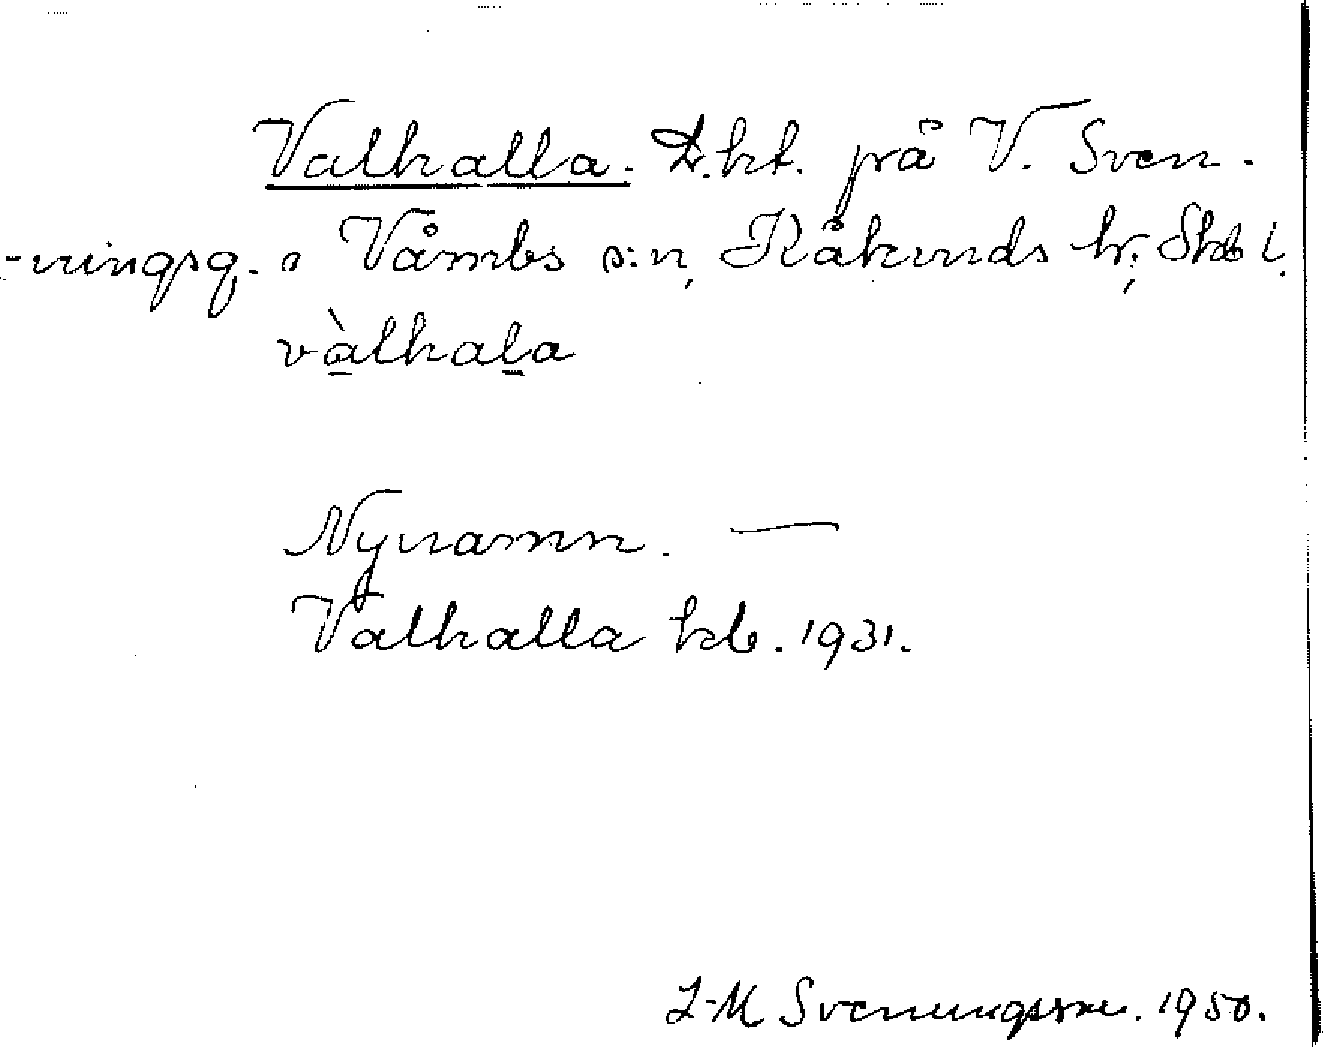 Valhalla. D.kt. på V. Sven-
-ningsg. s Våmbs s:n, Kåkinds hr; Skb l.
vàlhala
Nynamn. —
Valhalla kb. 1931.
L-M Svenungsson. 1950.